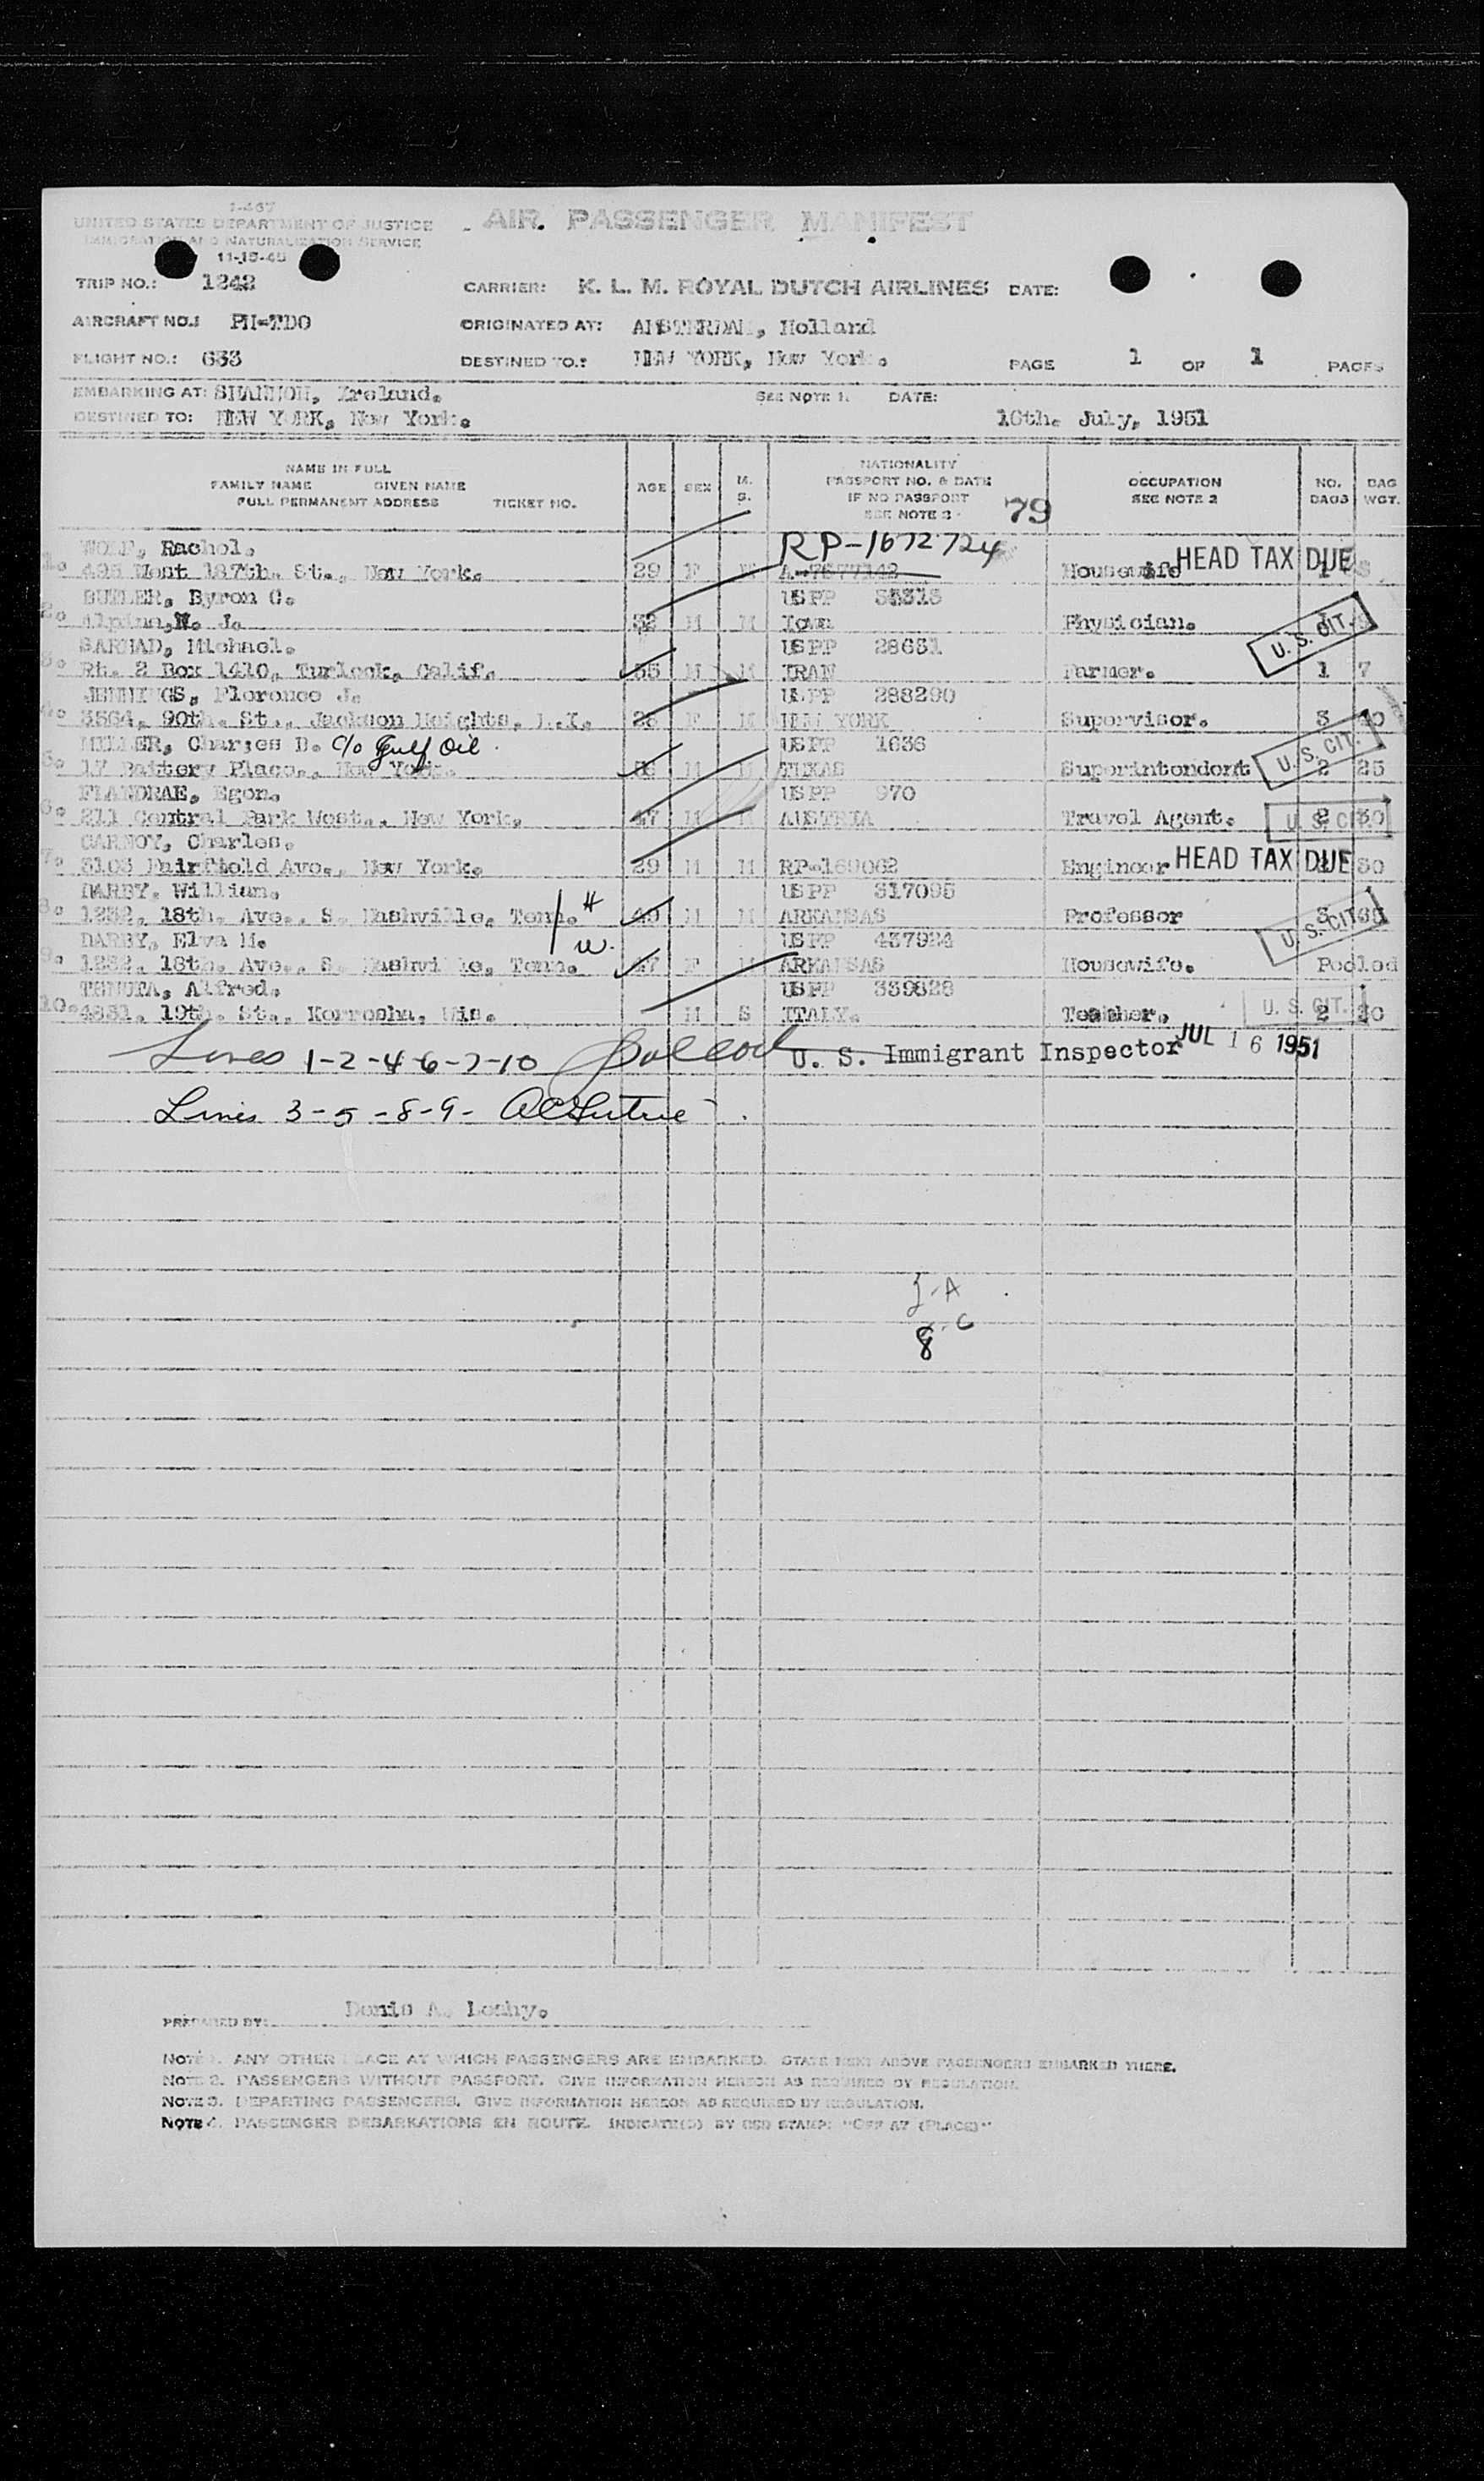 I-467
UNITED STATES DEPARTMENT OF JUSTICE
IMMIGRATION AND NATURALIZATION SERVICE
11-15-45
AIR PASSENGER MANIFEST
TRIP NO.: 1242 CARRIER: K. L. M. ROYAL DUTCH AIRLINES DATE:
AIRCRAFT NO.: PH-TDO ORIGINATED AT: AMSTERDAM, Holland
FLIGHT NO.: 633 DESTINED TO.: NEW YORK, New York. PAGE 1 OF 1 PAGES
EMBARKING AT: SHANNON, Ireland. SEE NOTE 1. DATE:
DESTINED TO: NEW YORK, New York. 16th. July, 1951
NAME IN FULL
FAMILY NAME GIVEN NAME
FULL PERMANENT ADDRESS TICKET NO.
AGE SEX M. S.
NATIONALITY
PASSPORT NO. & DATE
IF NO PASSPORT
SEE NOTE 3
79
OCCUPATION
SEE NOTE 2
NO. BAGS BAG WGT.
WOLF, Rachel. RP-1672724
1. West 187th. St., New York. 29 F M A-7677142 Housewife HEAD TAX DUE
BUTLER, Byron C. USPP
2. Alpine, N. J. M M Iowa Physician. U. S. CIT.
SARMAD, Michael. USPP 28651
3. Rt. 2 Box 1410, Turlock, Calif. 55 M M IRAN Farmer. 1 7
JENNINGS, Florence J. USPP 288290
4. 3564, 90th. St., Jackson Heights, L.I. F M NEW YORK Supervisor. 3
MILLER, Charles D. c/o Gulf Oil USPP 1636
5. 17 Battery Place., New York. M TEXAS Superintendent U. S. CIT. 2 25
FIANDRAE, Egon. USPP 970
6. 211 Central Park West., New York. 47 M AUSTRIA Travel Agent. U. S. CIT. 2 30
CARNOY, Charles.
7. 3103 Fairfield Ave., New York. 29 M M RP-169062 Engineer HEAD TAX DUE 30
DARBY, William. USPP 317095
8. 1232, 18th. Ave., S. Nashville, Tenn. H 49 M M ARKANSAS Professor U. S. CIT. 3
DARBY, Elva M. W. USPP 437924
9. 1232, 18th. Ave., S. Nashville, Tenn. 47 F M ARKANSAS Housewife. Pooled
TENUTA, Alfred. USPP 339828
10. 4831, 19th. St., Kenosha, Wis. M S ITALY. Teacher. U. S. CIT. 2
Lines 1-2-4-6-7-10 U. S. Immigrant Inspector JUL 16 1951
Lines 3-5-8-9-
2-A
8-C
8
PREPARED BY: Denis A. Leahy.
NOTE 1. ANY OTHER PLACE AT WHICH PASSENGERS ARE EMBARKED. STATE NEXT ABOVE PASSENGERS EMBARKED THERE.
NOTE 2. PASSENGERS WITHOUT PASSPORT. GIVE INFORMATION HEREON AS REQUIRED BY REGULATION.
NOTE 3. DEPARTING PASSENGERS. GIVE INFORMATION HEREON AS REQUIRED BY REGULATION.
NOTE 4. PASSENGER DEBARKATIONS EN ROUTE. INDICATE(D) BY RED STAMP: "OFF AT (PLACE)"